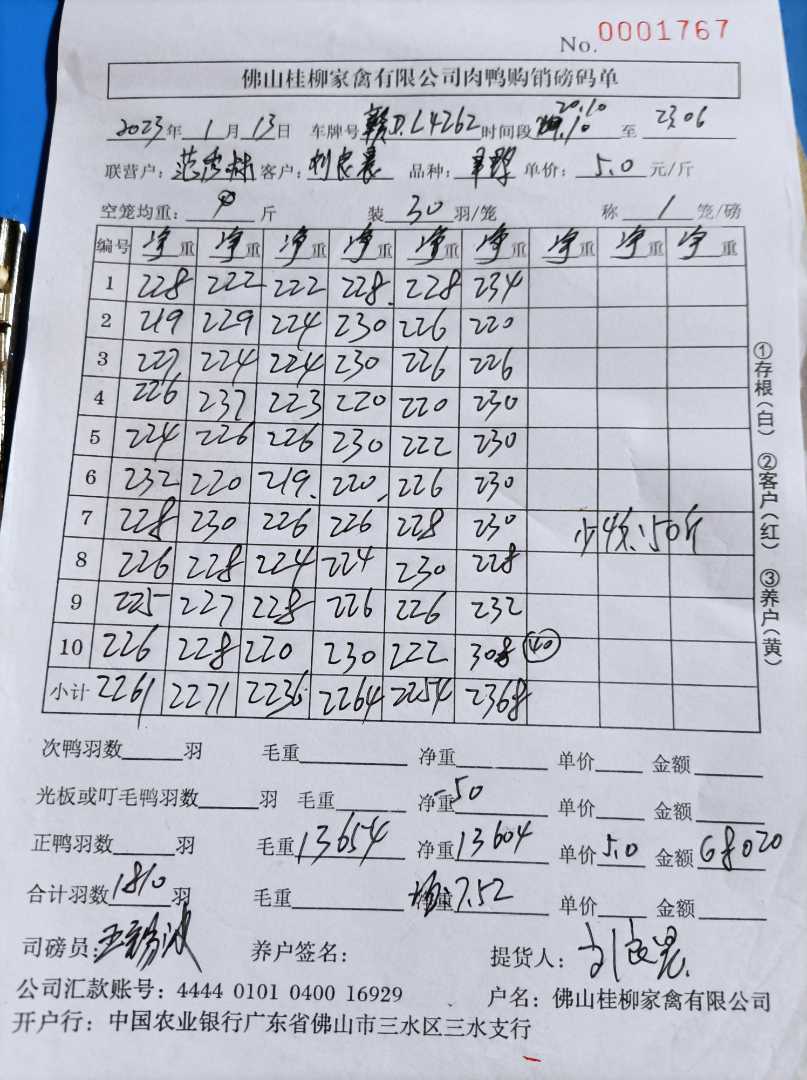 No. 0001767
佛山桂柳家禽有限公司肉鸭购销磅码单
2023年 1月 13日 车牌号 赣D.L4262 时间段 20:10 至 23:06
联营户: 客户: 品种: 单价: 5.0 元/斤
空笼均重: 斤 装 30 羽/笼 称 1 笼/磅
编号 净重 净重 净重 净重 净重 净重 净重 净重 净重
1 228 222 222 228 228 234
2 219 229 224 230 226 220
3 227 224 224 230 226 226
4 226 237 223 220 220 230
5 224 226 226 230 222 230
6 232 220 219 220 226 230
7 228 230 226 226 228 230
8 226 228 224 224 230 228
9 225 227 228 226 226 232
10 226 228 220 230 222 308 40
小计 2261 2271 2236 2264 2254 2368
少收:50斤
①存根(白) ②客户(红) ③养户(黄)
次鸭羽数 羽 毛重 净重 单价 金额
光板或叮毛鸭羽数 羽 毛重 净重 -50 单价 金额
正鸭羽数 羽 毛重 13654 净重 13604 单价 5.0 金额 68020
合计羽数 1810 羽 毛重 均重 7.52 单价 金额
司磅员: 养户签名: 提货人:
公司汇款账号: 4444 0101 0400 16929 户名: 佛山桂柳家禽有限公司
开户行: 中国农业银行广东省佛山市三水区三水支行